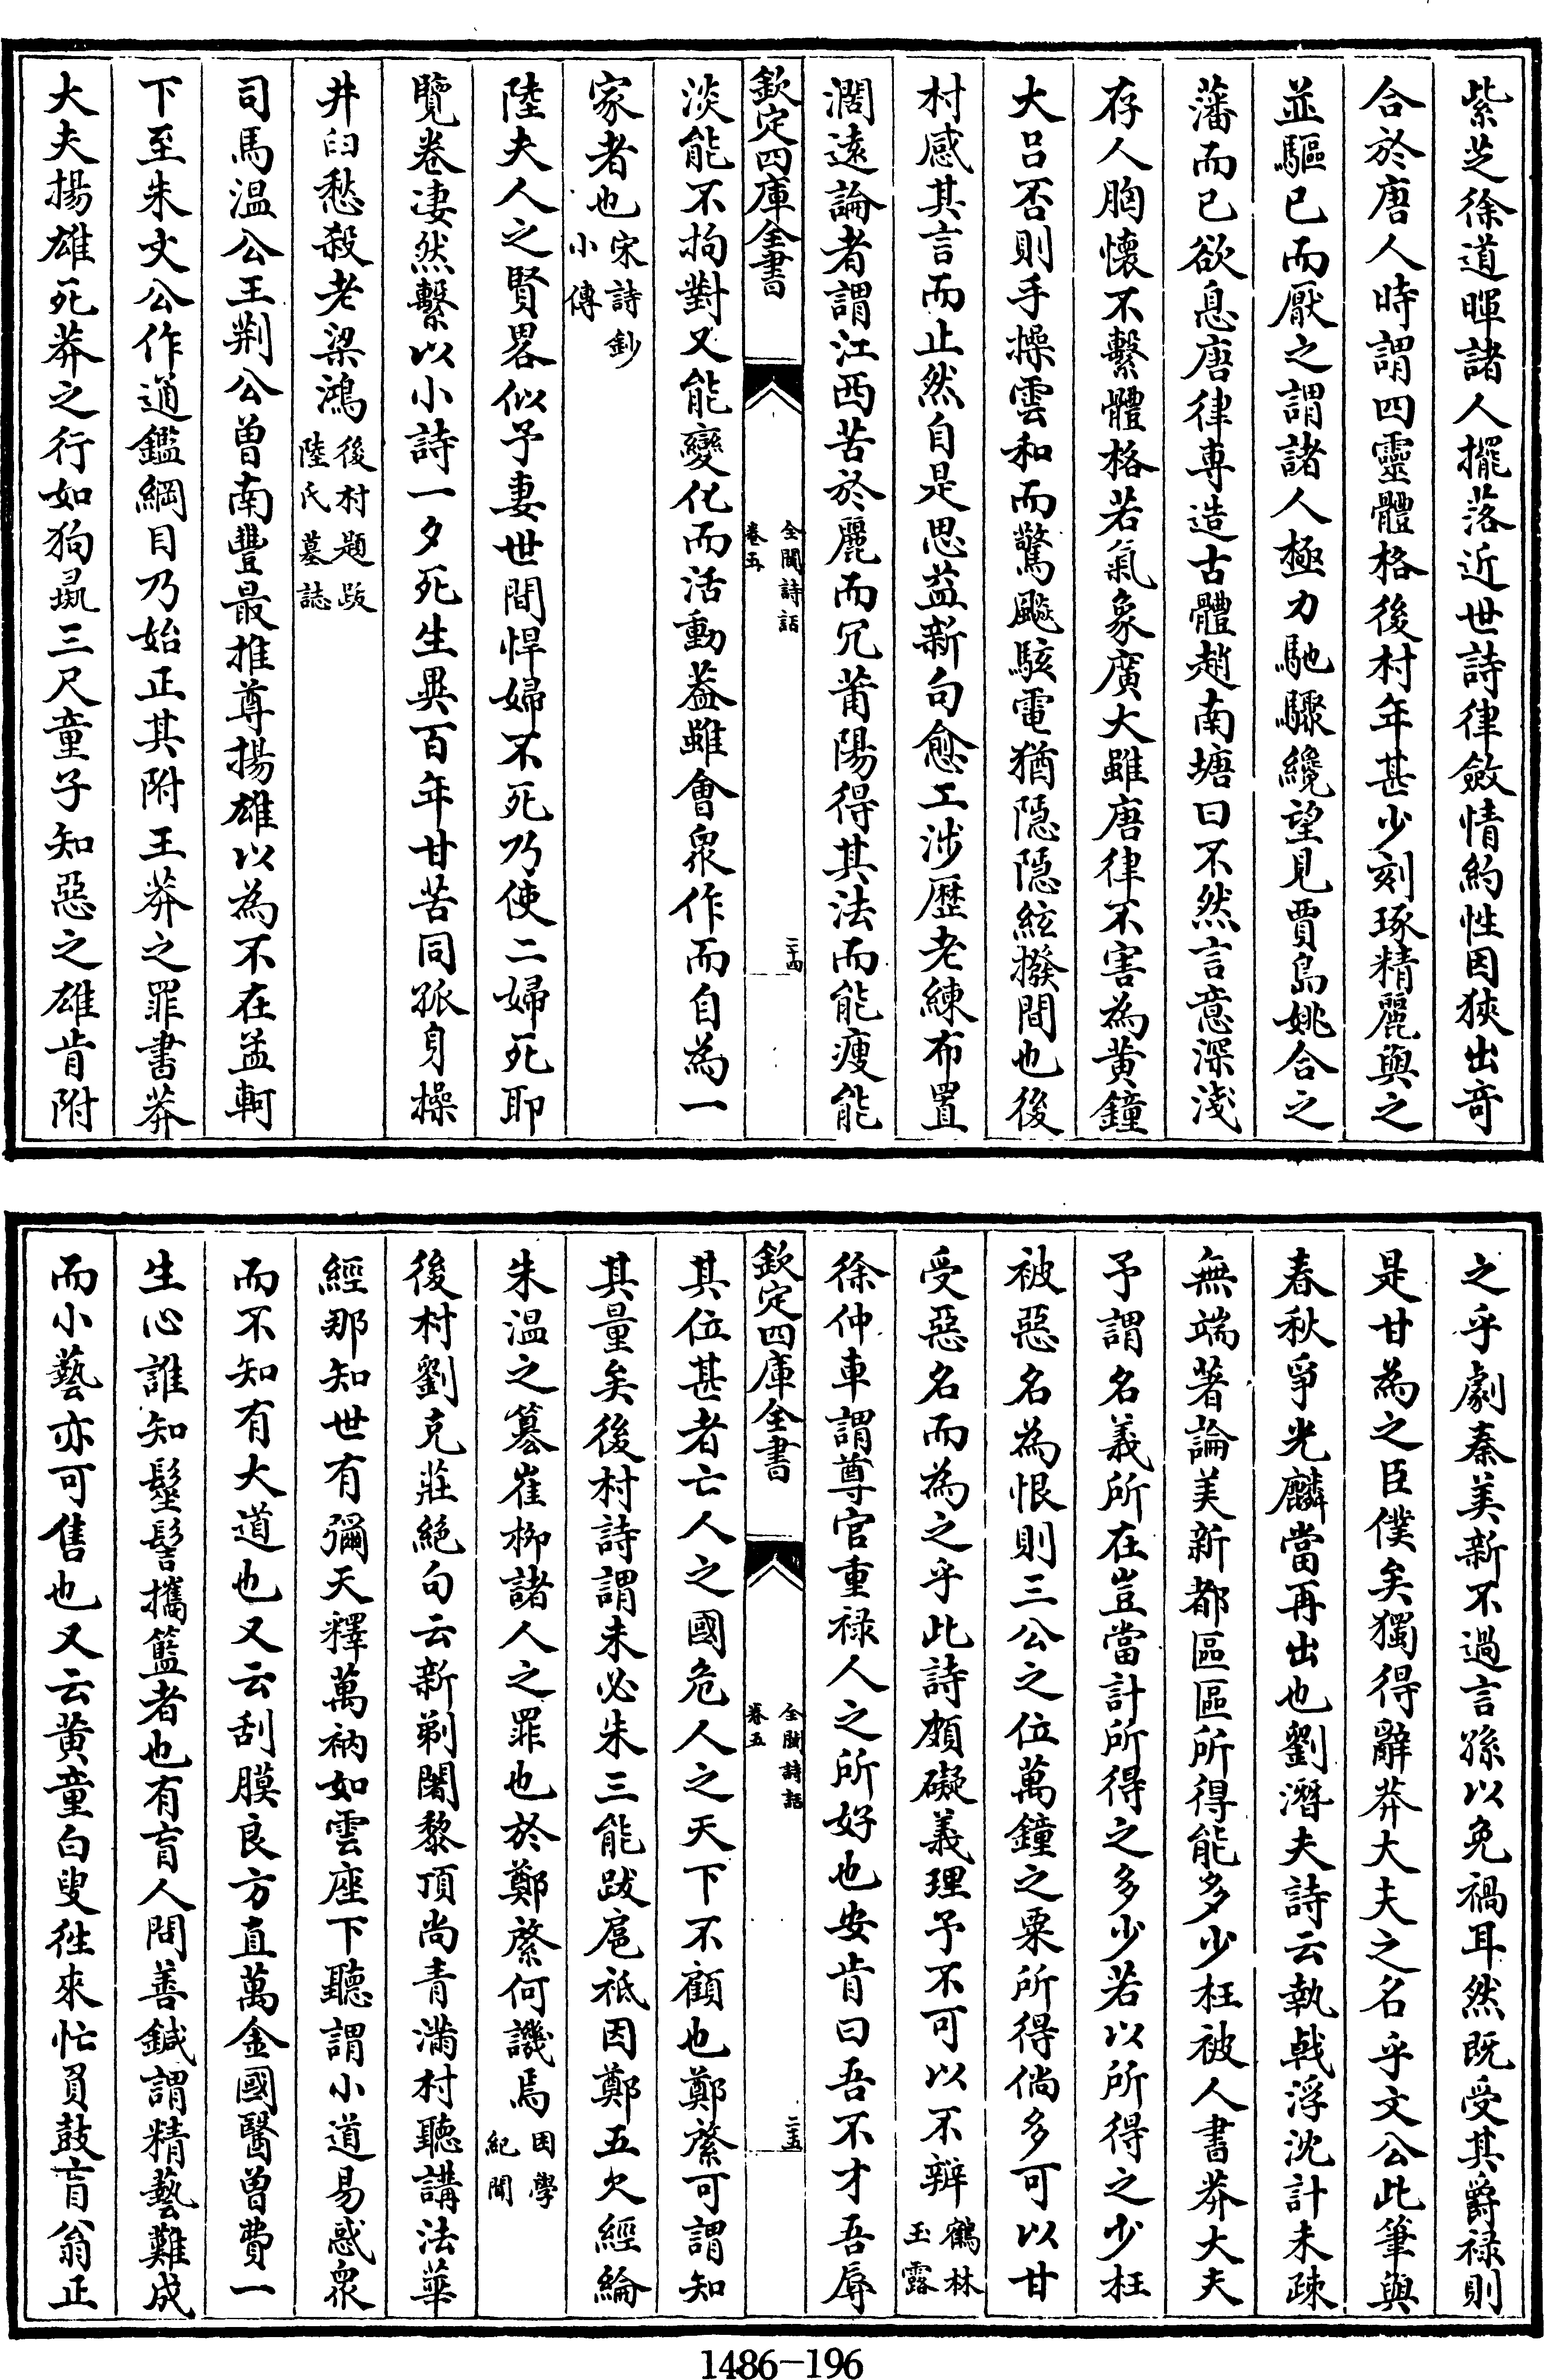 紫芝徐道暉諸人擺落近世詩律斂情約性因狹出奇
合於唐人時謂四靈體格後村年甚少刻琢精麗與之
並驅已而厭之謂諸人極力馳驟纔望見賈島姚合之
藩而已欲息唐律專造古體趙南塘曰不然言意深淺
存人胸懷不繫體格若氣象廣大雖唐律不害為黃鐘
大呂否則手操雲和而驚飈駭電猶隱隱絃撥間也後
村感其言而止然自是思益新句愈工涉歷老練布置
濶遠論者謂江西苦於麗而冗莆陽得其法而能瘦能
欽定四庫全書
全閩詩話
卷五
二十四
淡能不拘對又能變化而活動葢雖會衆作而自為一
家者也宋詩鈔小傳
陸夫人之賢畧似予妻世間悍婦不死乃使二婦死耶
覽卷凄然繫以小詩一夕死生異百年甘苦同孤身操
井臼愁殺老梁鴻後村題跋陸氏墓誌
司馬溫公王荆公曾南豐最推尊揚雄以為不在孟軻
下至朱文公作通鑑綱目乃始正其附王莽之罪書莽
大夫揚雄死莽之行如狗彘三尺童子知惡之雄肯附
之乎劇秦美新不過言孫以免禍耳然既受其爵祿則
是甘為之臣僕矣獨得辭莽大夫之名乎文公此筆與
春秋爭光麟當再出也劉潛夫詩云執戟浮沈計未疎
無端著論美新都區區所得能多少枉被人書莽大夫
予謂名義所在豈當計所得之多少若以所得之少枉
被惡名為恨則三公之位萬鐘之粟所得倘多可以甘
受惡名而為之乎此詩頗礙義理予不可以不辯鶴林玉露
徐仲車謂尊官重祿人之所好也安肯曰吾不才吾辱
欽定四庫全書
全閩詩話
卷五
二十五
其位甚者亡人之國危人之天下不顧也鄭綮可謂知
其量矣後村詩謂未必朱三能跋扈祗因鄭五欠經綸
朱溫之簒崔栁諸人之罪也於鄭綮何譏焉困學紀聞
後村劉克莊絕句云新剃闍黎頂尚青滿村聽講法華
經那知世有彌天釋萬衲如雲座下聽謂小道易惑衆
而不知有大道也又云刮膜良方直萬金國醫曾費一
生心誰知髽髻攜籃者也有盲人問善鍼謂精藝難成
而小藝亦可售也又云黃童白叟往來忙負鼓盲翁正
1486-196